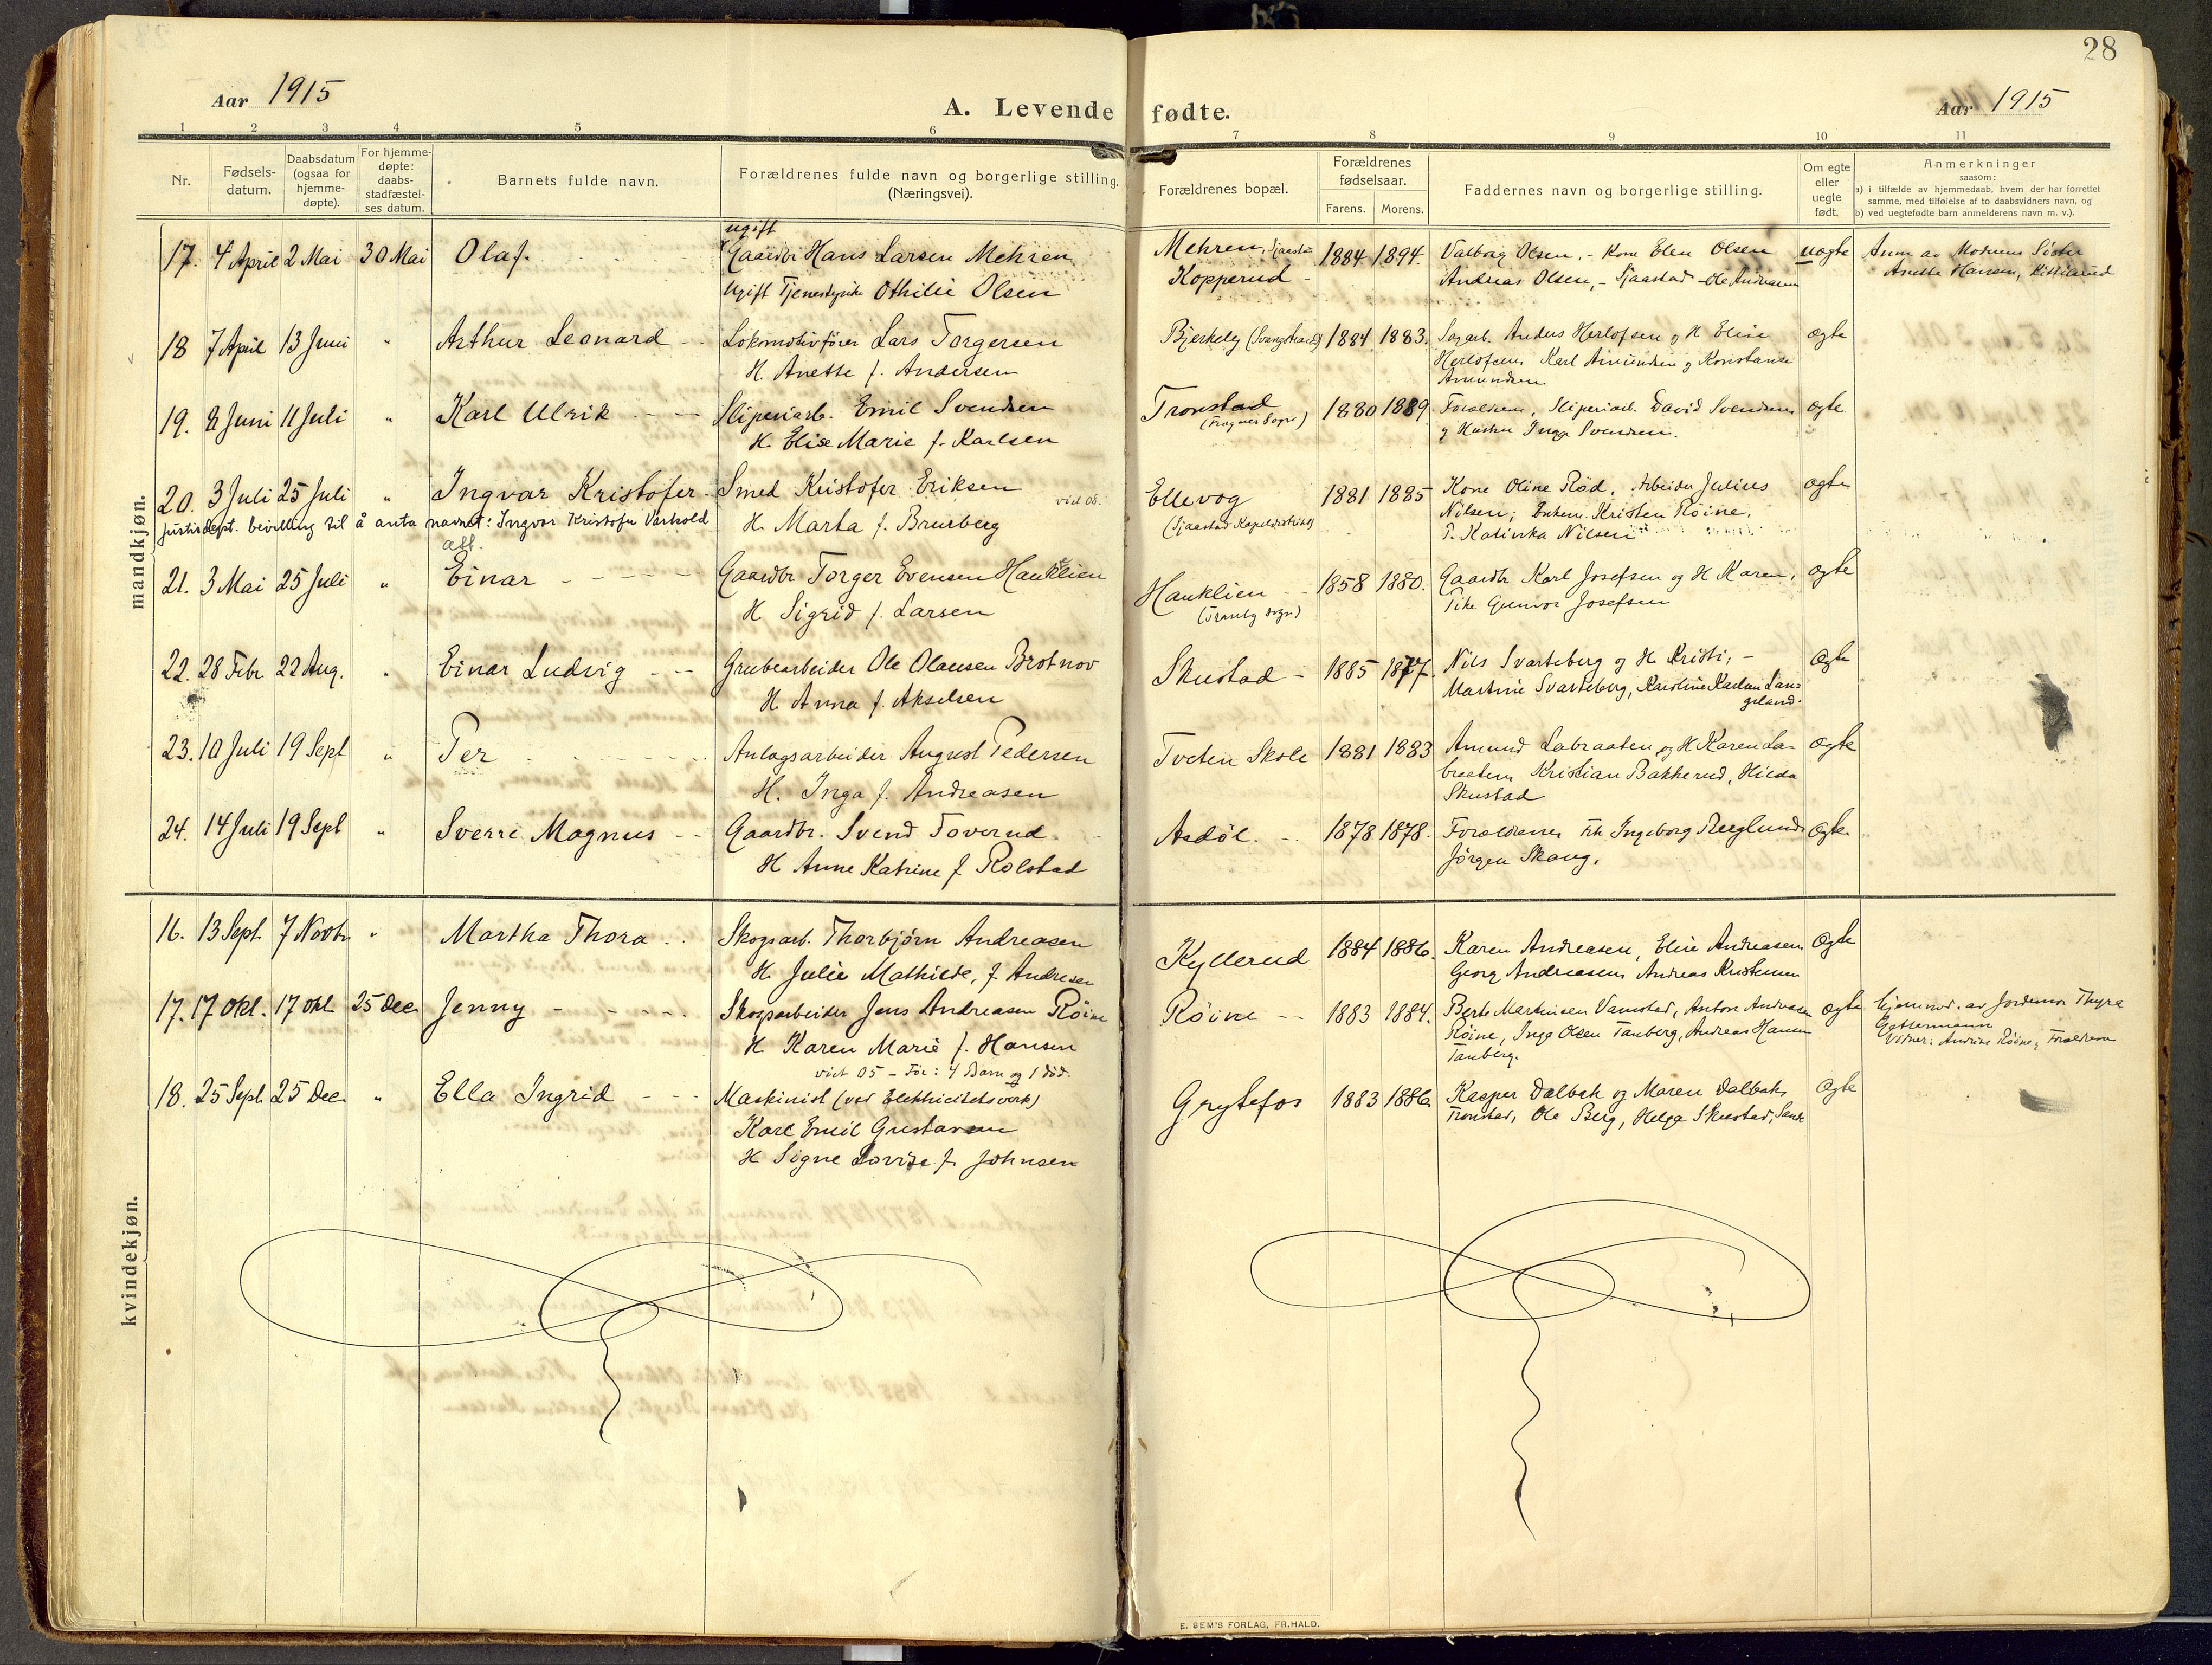 28
Aar 1915
A. Levende fødte.
Aar 1915
1 2 3 4 5 6 7 8 9 10 11
Nr.
Fødsels-
datum.
Daabsdatum
(ogsaa for
hjemme-
døpte).
For hjemme-
døpte:
daabs-
stadfæstel-
ses datum.
Barnets fulde navn.
Forældrenes fulde navn og borgerlige stilling.
(Næringsvei).
Forældrenes bopæl.
Forældrenes
fødselsaar.
Farens. Morens.
Faddernes navn og borgerlige stilling.
Om egte
eller
uegte
født.
Anmerkninger
saasom:
a) i tilfælde av hjemmedaab, hvem der har forrettet
samme, med tilføielse af to daabsvidners navn, og
b) ved uegtefødte barn anmelderens navn m. v.).
mandkjøn.
17. 4 April 2 Mai 30 Mai Olaf.
ugift
Gaardbr Hans Larsen Mehren
Ugift Tjenestepike Othilie Olsen
Mehren, Sjaastad
Kopperud
1884 1894.
Valborg Olsen, - Kone Elen Olsen
Andreas Olsen, - Sjaastad - Ole Andreasen
uægte
Anm av Moderens Søster
Anette Hansen,
18 7 April 13 Juni " Arthur Leonard
Lokomotivfører Lars Torgersen
H. Anette f. Andersen
Bjerkely (Svangstrand)
1884 1883.
Sagarb. Anders Herlofsen og H Elise
Herlofsen, Karl Amundsen og Konstanse
Amundsen
ægte
19. 8 Juni 11 Juli " Karl Ulrik
Sliperiarb. Emil Svendsen
H. Elise Marie f. Karlsen
Tronstad
(Frogner Sogn)
1880 1889
Forældrene, Sliperiarb. David Svendsen
og Hustru Inga Svendsen.
ægte
20. 3 Juli 25 Juli " Ingvar Kristofer
Smed Kristofer Eriksen
viet 08.
H. Marta f. Brurberg
Justisdept. bevilling til å anta navnet: Ingvar Kristofer Varhold
att.
Ellevog
(Sjaastad Kapeldistrikt)
1881 1885
Kone Oline Rød, Arbeider Julius
Nilsen; Enkem. Kristen Røine.
P. Katinka Nilsen
ægte
21. 3 Mai 25 Juli " Einar
Gaardbr Torger Evensen Hauklien
H Sigrid f. Larsen
Hauklien
(Tranby sogn)
1858 1880.
Gaardbr Karl Josefsen og H Karen,
Pike Gunvor Josefsen
ægte
22. 28 Febr 22 Aug. " Einar Ludvig
Grubearbeider Ole Olausen Brotnov
H. Anna f. Akselsen
Skustad
1885 1877.
Nils Svarteberg og H Kristi, -
Martine Svarteberg, Karoline Karlsen Lan-
geland.
Ægte
23. 10 Juli 19 Sept " Per
Anlægsarbeider August Pedersen
H. Inga f. Andreasen
Tveten Skole
1881 1883
Amund Labraaten og H Karen La-
braaten Kristian Bakkerud, Hilda
Skustad
Ægte
24. 14 Juli 19 Sept " Sverre Magnus
Gaardbr. Svend Toverud
H Anne Katrine f Rolstad
Asdøl.
1878 1878.
Forældrene Frk Ingeborg
Jørgen Skaug.
Ægte
kvindekjøn.
16. 13 Sept 7 Novbr " Martha Thora
Skogsarb. Thorbjørn Andreasen
H. Julie Mathilde, f Andresen
Kyllerud
1884 1886.
Karen Andreasen, Elise Andreasen
Georg Andreasen, Andreas Kristensen
Ægte
17. 17 Okt. 17 Okt 25 Dec Jenny
Skogsarbeider Jens Andreasen Røine
H Karen Marie f. Hansen
Røine
1883 1884.
Berte Martinsen Vamstad, Anton Andreasen
Røine, Inga Olsen Tanberg, Andreas Hansen
Tanberg.
ægte
Hjemmed. av Jordemor Thyra
Gettermann
Vidner: Andrine Røine, Forældrene
18. 25 Sept 25 Dec " Ella Ingrid
viet 05 - Før: 4 Barn og 1 død.
Maskinist (ved Elektricitetsverk)
Karl Emil Gustavsen
H Signe Lovise f. Johnsen
Grytefos
1883 1886.
Kasper Dalbak og Maren Dalbak,
Tronstad, Ole Berg, Helga Skustad, Sand
Ægte
E. SEM'S FORLAG, FR.HALD.